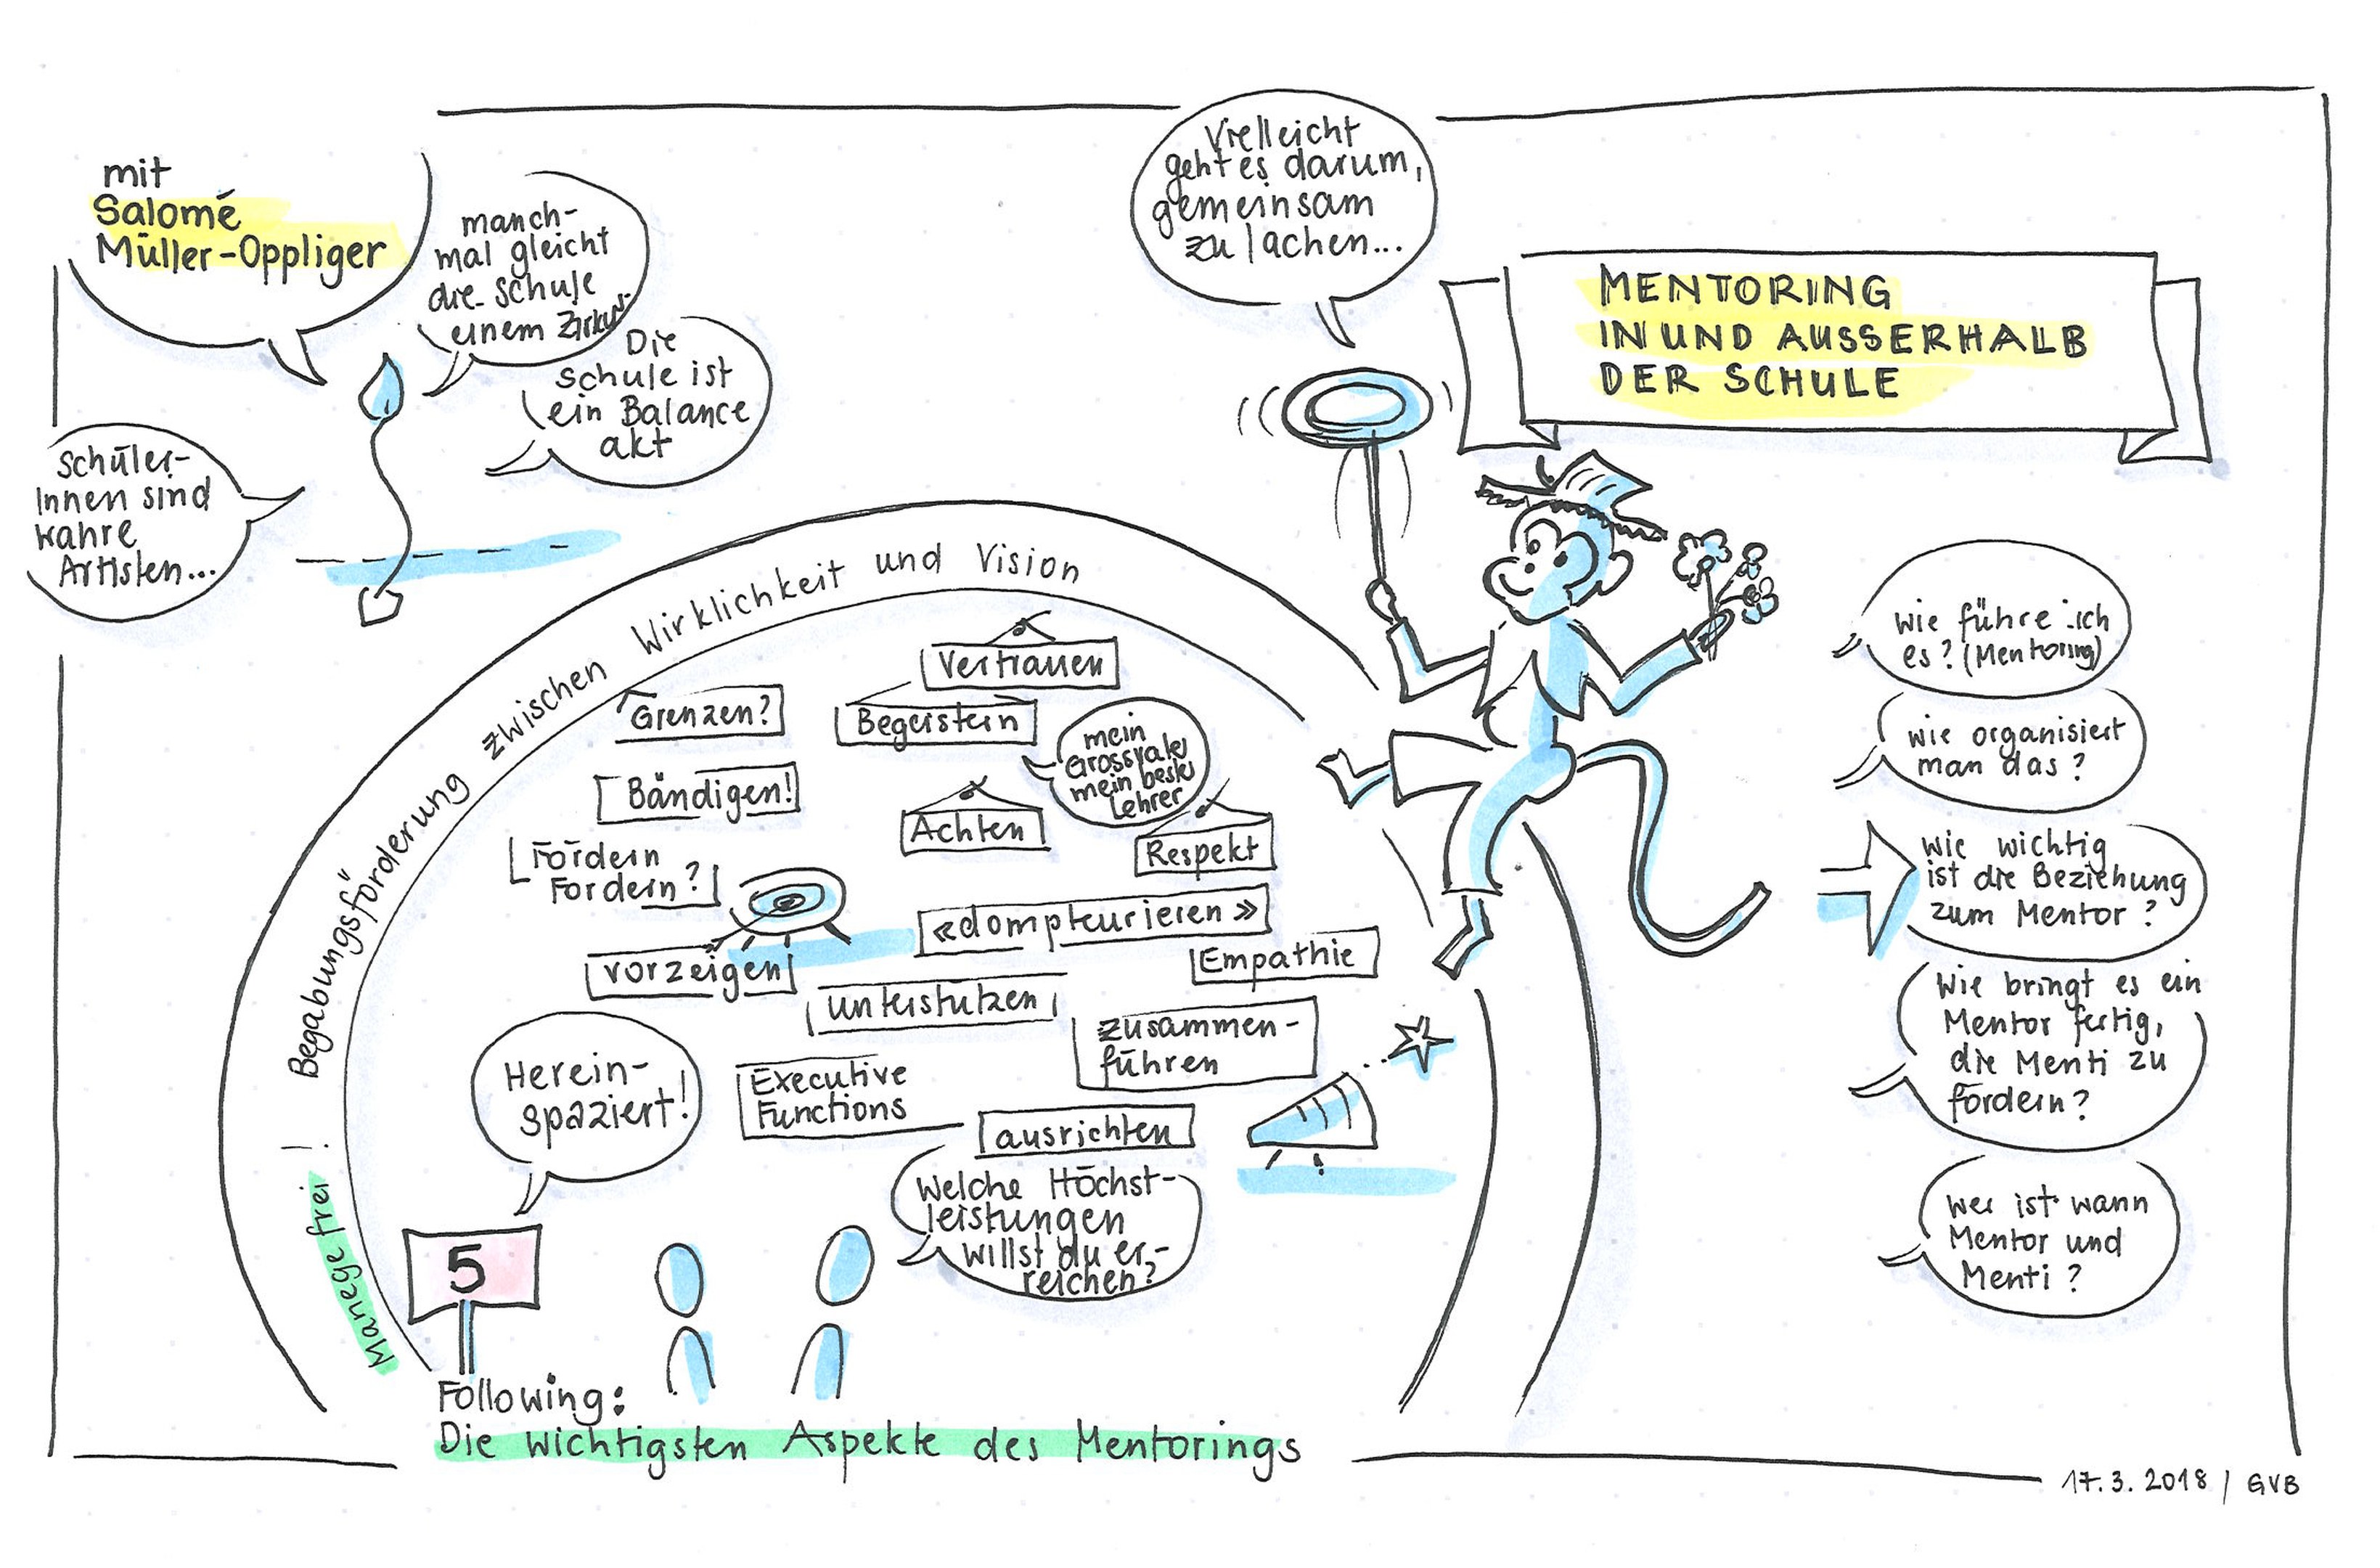 mit
Salomé
Müller-Oppliger
manch-
mal gleicht
die Schule
einem Zirkus
Die
Schule ist
ein Balance
akt
Schüler-
Innen sind
wahre
Artisten...
Vielleicht
geht es darum,
gemeinsam
zu lachen...
MENTORING
IN UND AUSSERHALB
DER SCHULE
Manege frei! Begabungsförderung zwischen Wirklichkeit und Vision
Vertrauen
Grenzen?
Begeistern
mein
Grossvater
mein bester
Lehrer
Bändigen!
Achten
Respekt
Fördern
Fordern?
«dompteurieren»
vorzeigen
Empathie
unterstützen
zusammen-
führen
Herein-
spaziert!
Executive
Functions
ausrichten
Welche Höchst-
leistungen
willst du er-
reichen?
5
Following:
Die wichtigsten Aspekte des Mentorings
wie führe ich
es? (Mentoring)
wie organisiert
man das?
wie wichtig
ist die Beziehung
zum Mentor?
Wie bringt es ein
Mentor fertig,
die Menti zu
fördern?
wer ist wann
Mentor und
Menti?
17.3.2018 / GVB